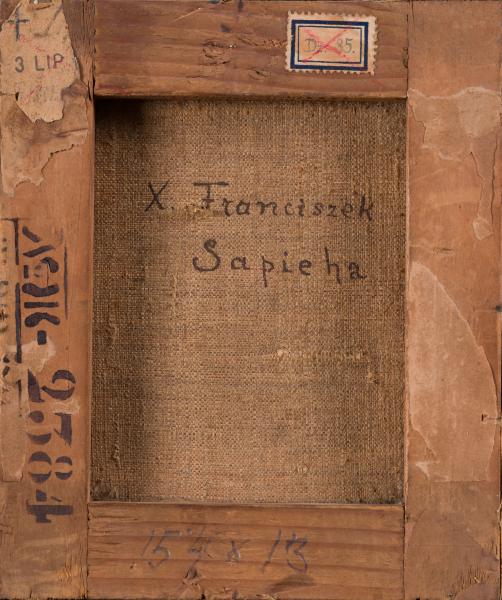 3 LIP.
Dz. 85.
X. Franciszek
Sapieha
2384
15,4 x 13